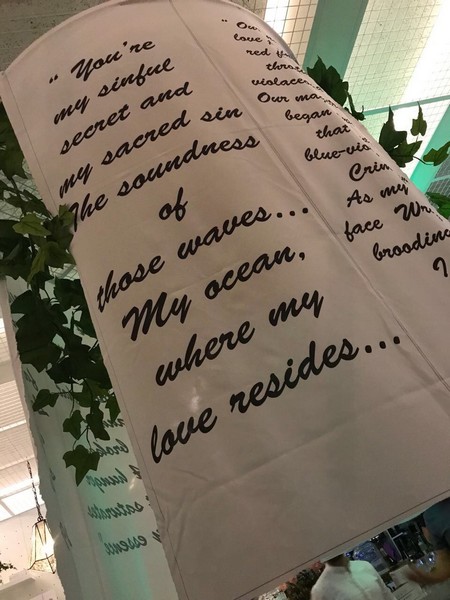 " You're
my sinful
secret and
my sacred sin
The soundness
of
those waves...
My ocean,
where my
love resides...
" Ou
love
red
thro
violace
Our ma
began
that
blue-vio
Crim
As my
face Wr
brooding
I
broke
hunger
saturates
essenti